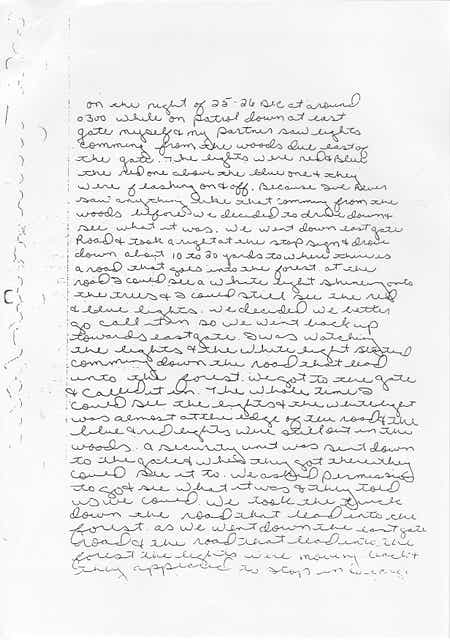 on the night of 25-26 Dec at around
0300 while on patrol down at east
gate myself & my partner saw lights
comming from the woods due east of
the gate. The lights were red & blue
the red one above the blue one & they
were flashing on & off. Because I've never
saw anything like that comming from the
woods before we decided to drive down &
see what it was. We went down east gate
Road & took a right at the stop sign & drove
down about 10 to 20 yards to where there is
a road that goes into the forest at the
road I could see a white light shining onto
the trees & I could still see the red
& blue lights. We decided we better
go call it in so we went back up
towards east gate. I was watching
the lights & the white light started
comming down the road that lead
into the forest. We got to the gate
& called it in. The whole time I
could see the lights & the white light
was almost at the edge of the road & the
blue & red lights were still out in the
woods. a security unit was sent down
to the gate & when they got there they
could see it to. we asked permission
to go & see what it was & they told
us we could. We took the truck
down the road that lead into the
forest. as we went down the east gate
road & the road that lead into the
forest the lights were moving back &
they appeared to stop in